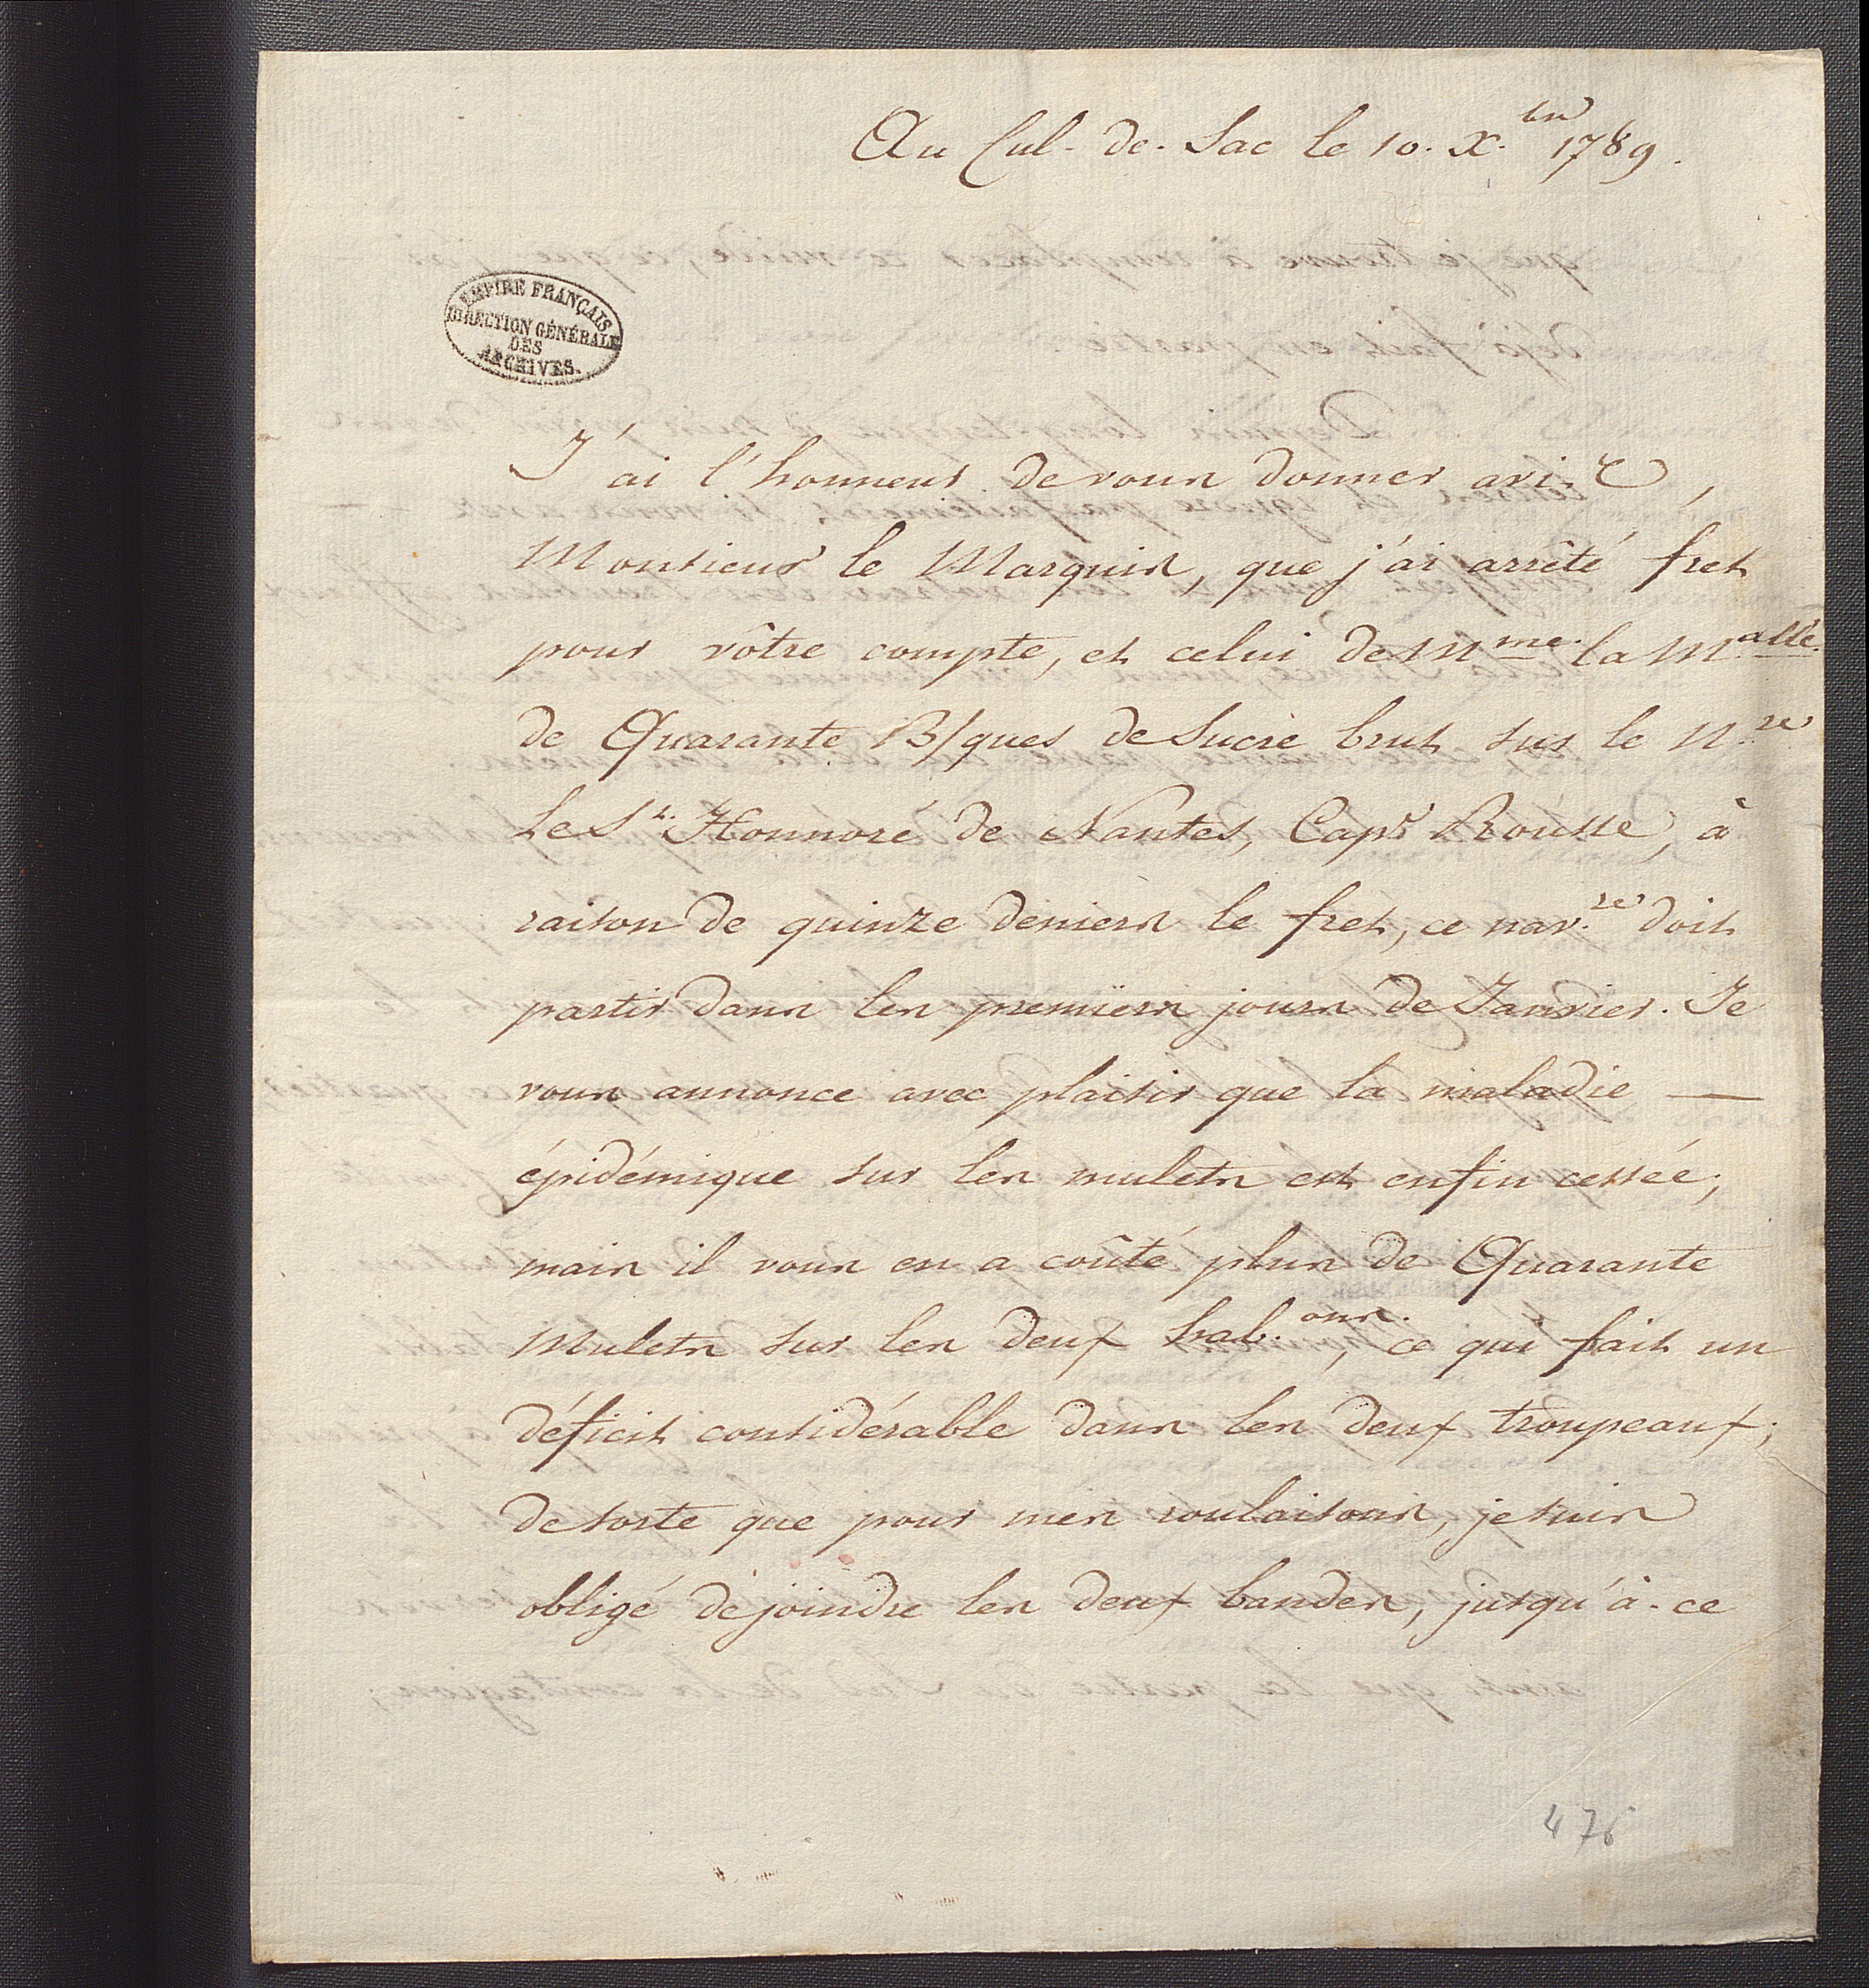 Au Cul-de-Sac le 10. X.bre 1789.
EMPIRE FRANÇAIS
DIRECTION GÉNÉRALE
DES
ARCHIVES.
J'ai l'honneur de vous donner avis,
Monsieur le Marquis, que j'ai arrêté fret
pour vôtre compte, et celui de Mme. la Malle.
de Quarante B/ques de Sucre brut sur le N.re
Le St. Honnoré de Nantes, Capne Rousse, à
raison de quinze deniers le fret, ce nav.re doit
partir dans les premiers jours de Janvier. Je
vous annonce avec plaisir que la maladie —
épidémique sur les mulets est enfin cessée;
mais il vous en a coûté plus de Quarante
Mulets sur les deux hab.ons., ce qui fait un
déficit considérable dans les deux troupeaux;
de sorte que pour mes roulaisons, je suis
obligé de joindre les deux bandes, jusqu'à-ce
476